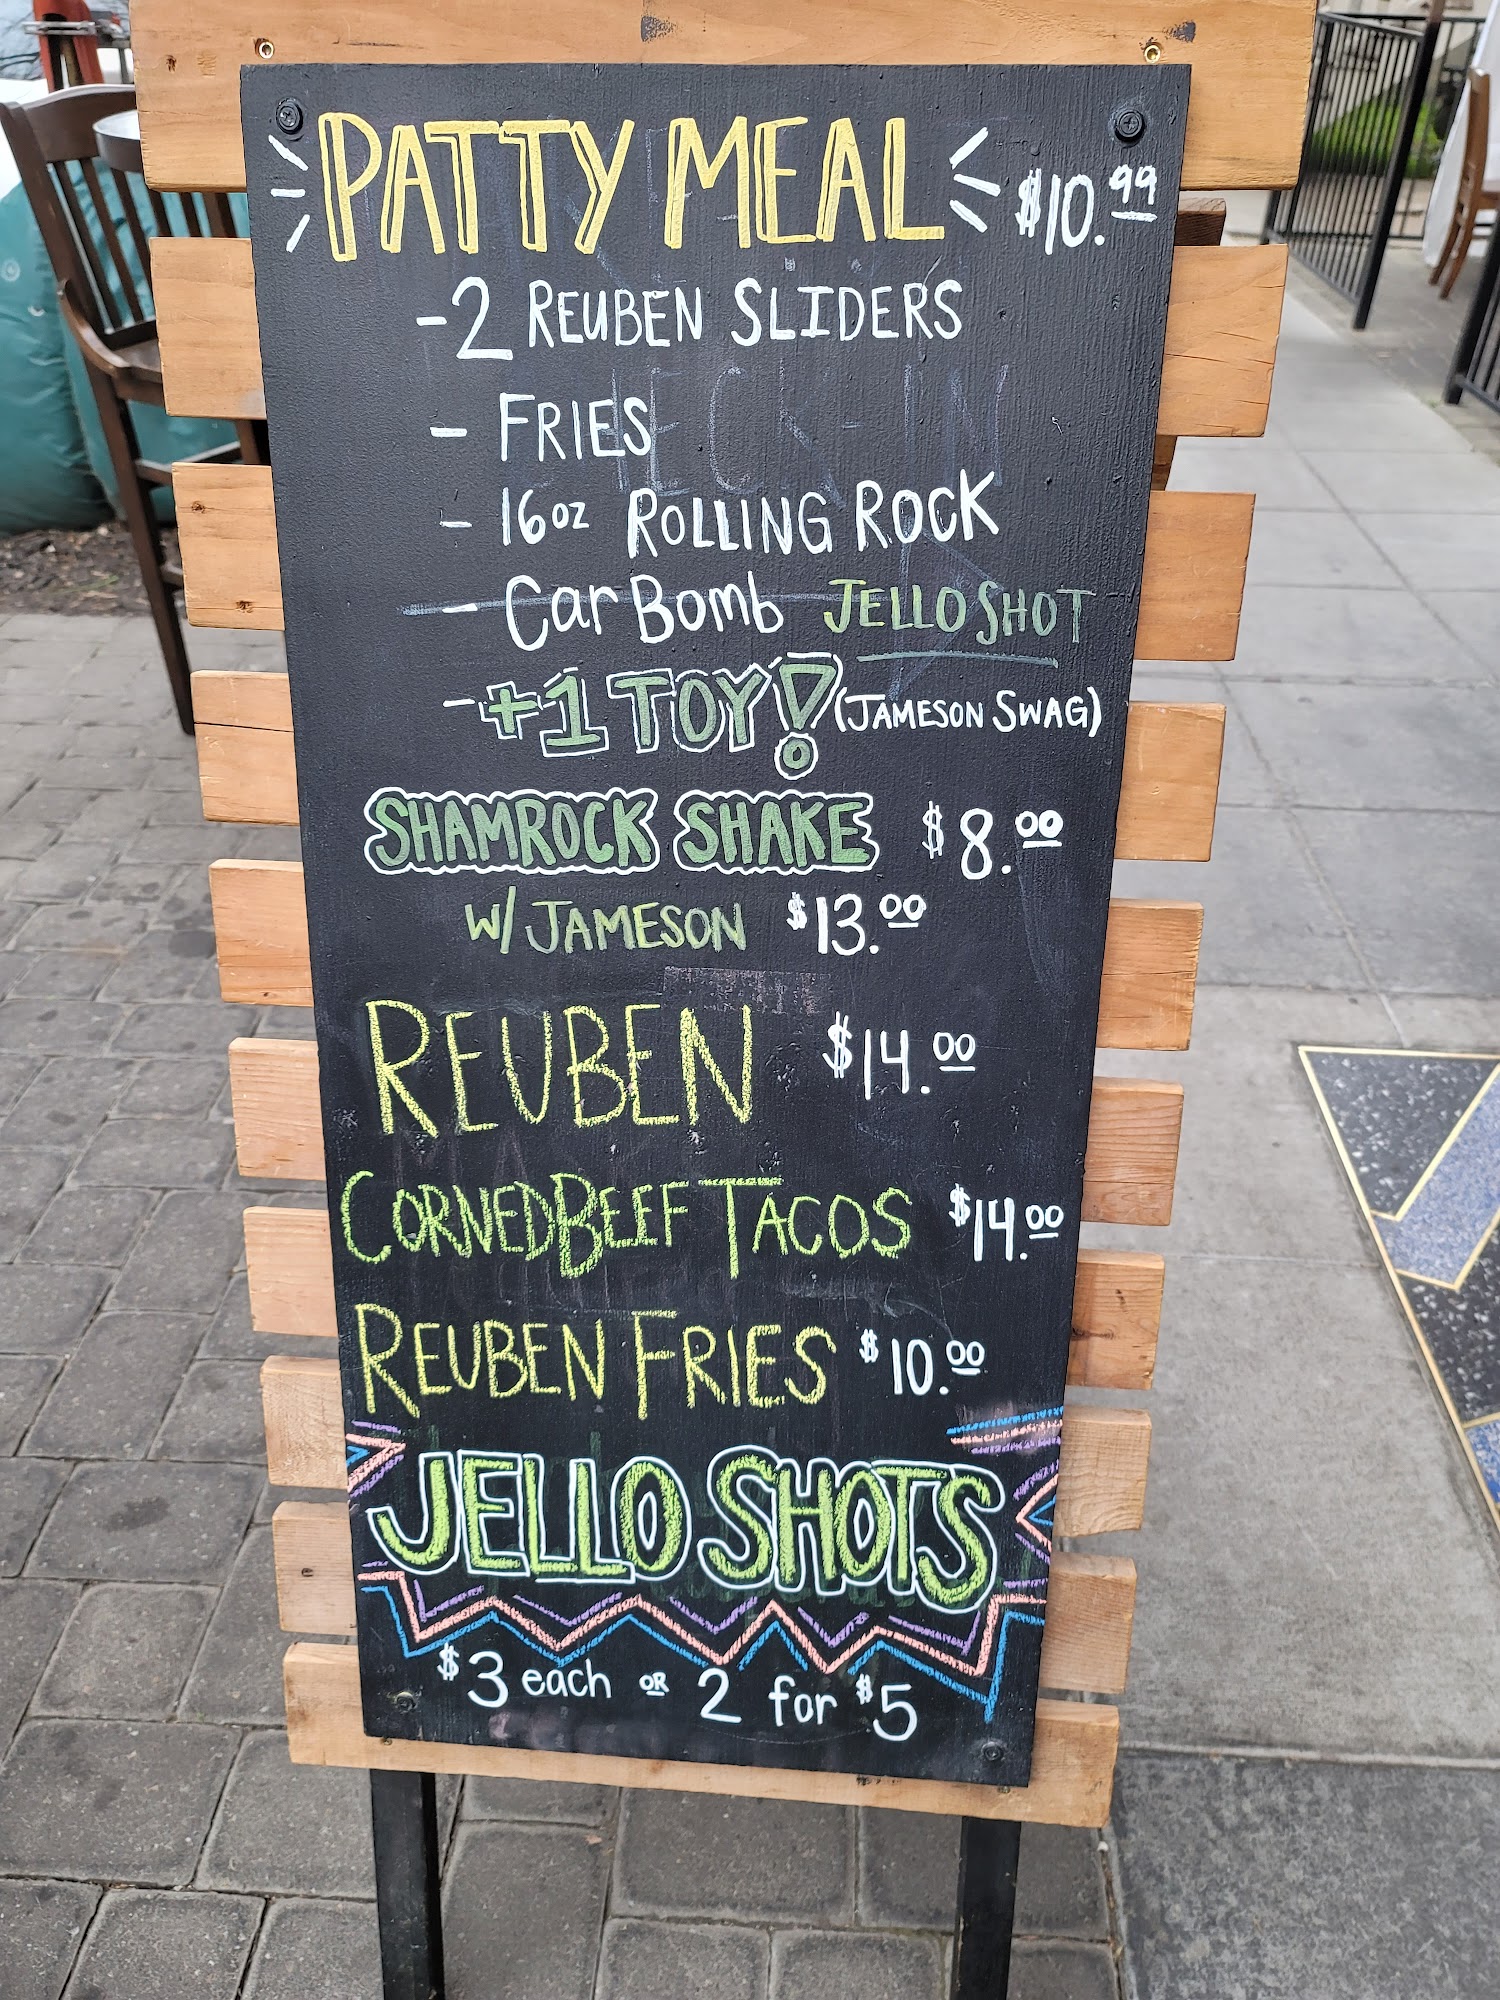 PATTY MEAL $10.99
-2 REUBEN SLIDERS
- FRIES
- 16oz ROLLING ROCK
- Car Bomb JELLO SHOT
- +1 TOY! (JAMESON SWAG)
SHAMROCK SHAKE $8.00
W/ JAMESON $13.00
REUBEN $14.00
CORNED BEEF TACOS $14.00
REUBEN FRIES $10.00
JELLO SHOTS
$3 each OR 2 for $5